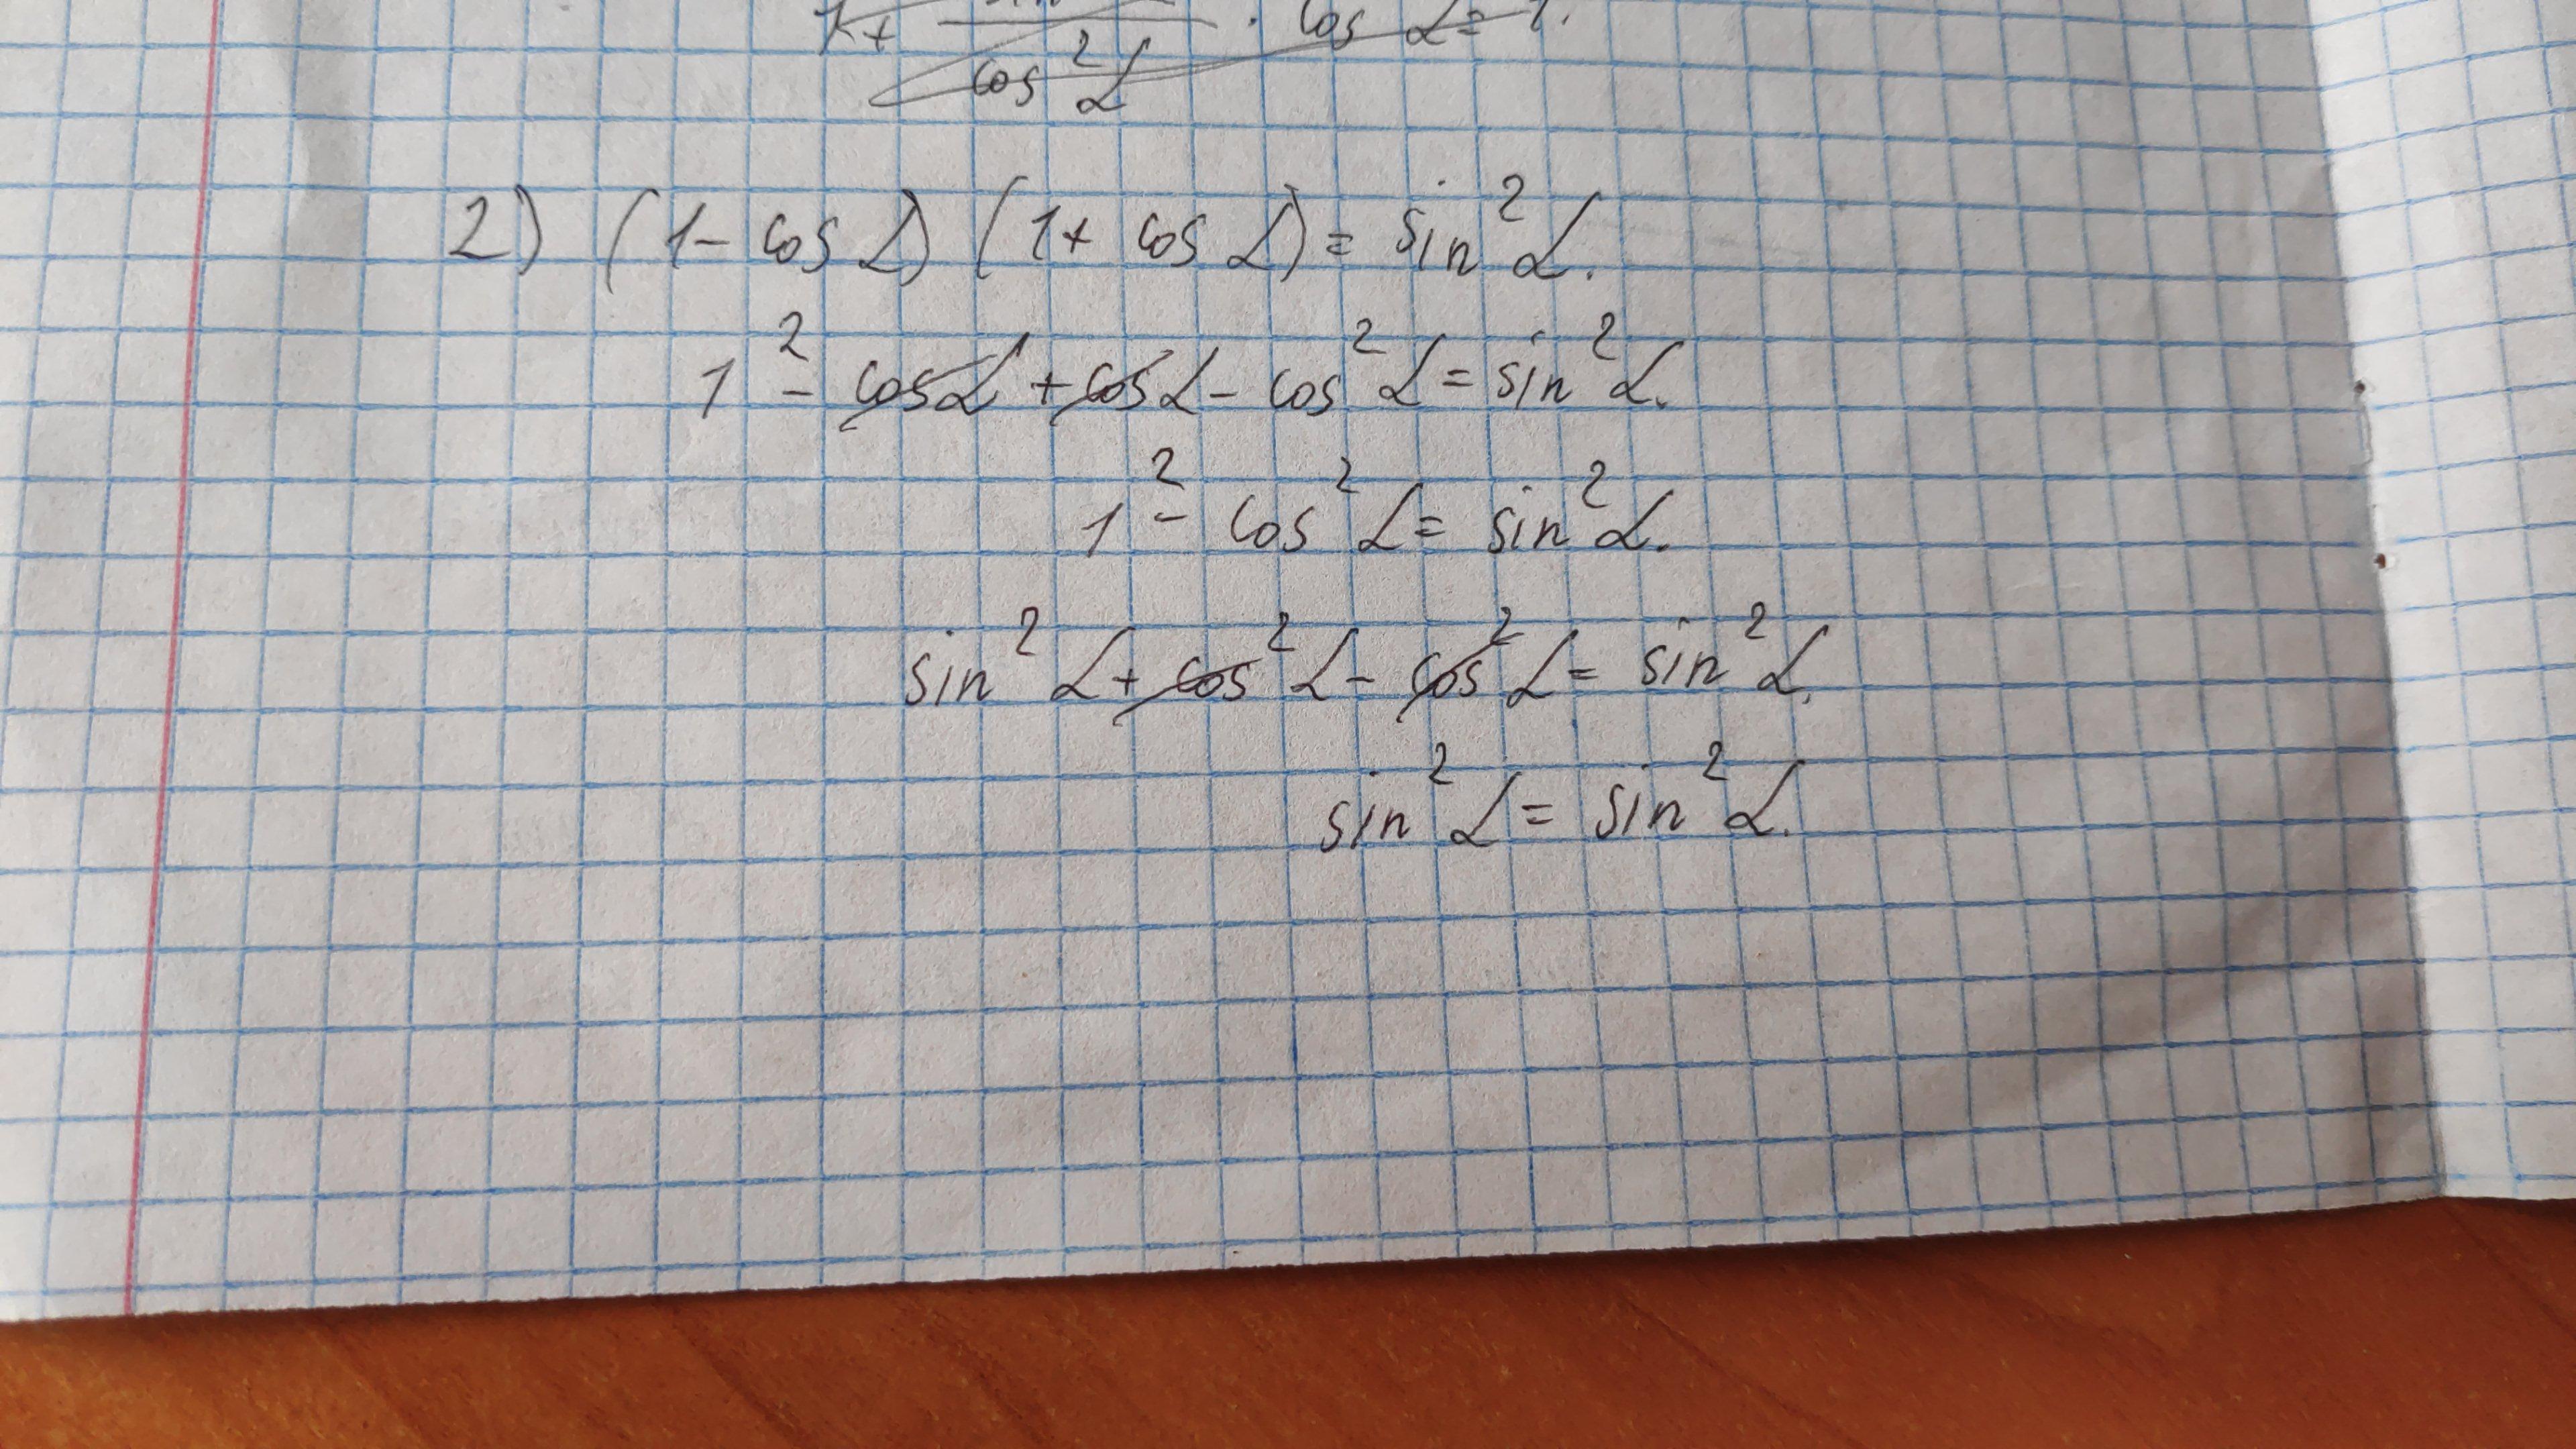 1+ ―― · cos α = 1.
cos² α
2) (1 - cos α) (1 + cos α) = sin² α.
1² - cos α + cos α - cos² α = sin² α.
1² - cos² α = sin² α.
sin² α + cos² α - cos² α = sin² α.
sin² α = sin² α.